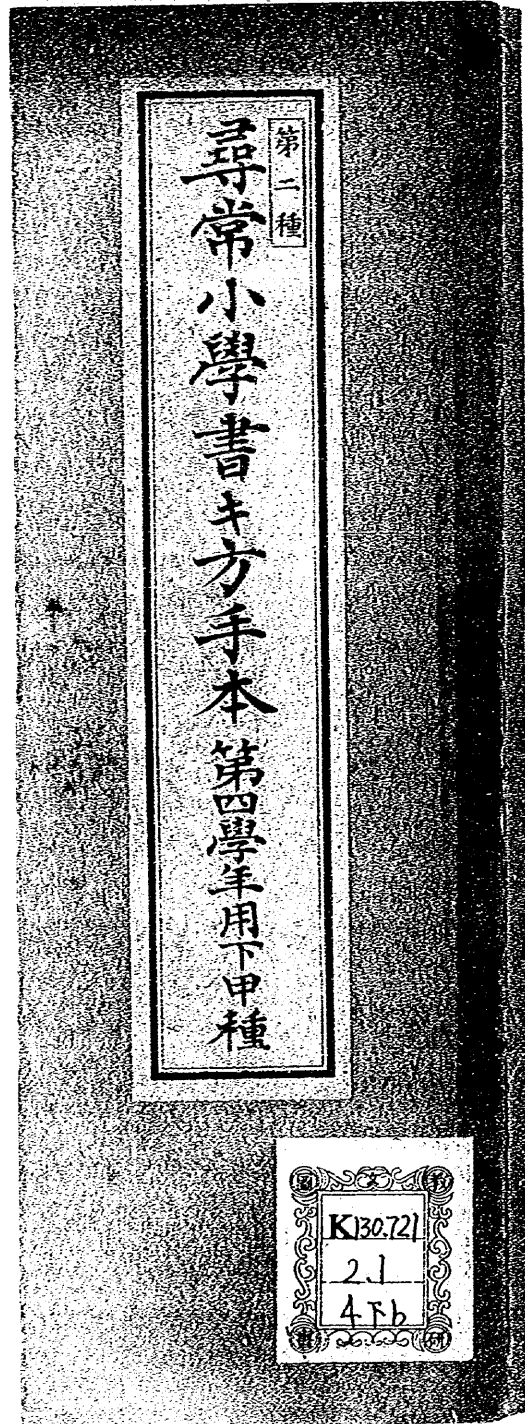 第二種
尋常小學書キ方手本 第四學年用下甲種
K130.721
2.1
4下b